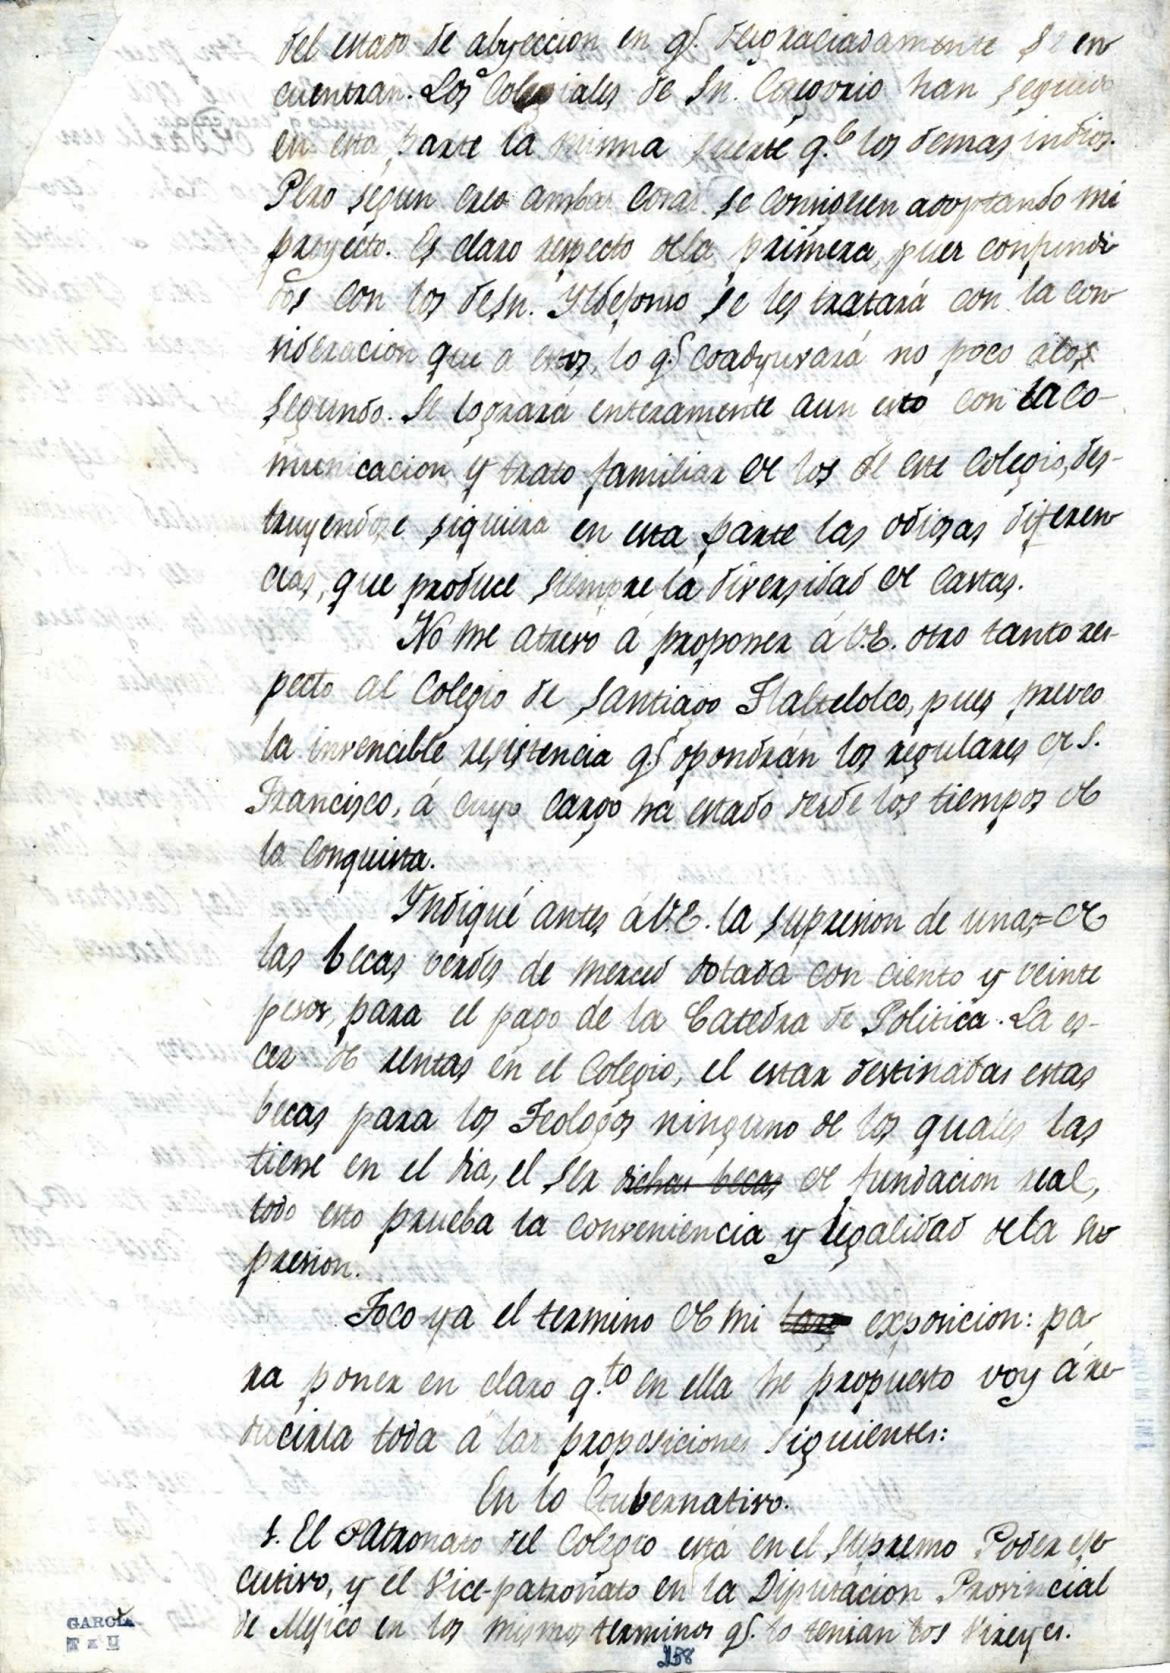 del estado de abyeccion en q.e desgraciadamente se en
cuentran. Los Colegiales de Sn. Gregorio han seguido
en esta parte la misma suerte q.e los demas indios.
Pero segun creo ambas cosas se consiguen adoptando mi
proyecto. Es claro respecto dela primera, pues confundi
dos con los deSn. Yldefonso se les tratará con la con
sideracion que a estos, lo q.e coadyuvará no poco alo
segundo. Se logrará enteramente aun esto con la co-
municacion y trato familiar de los de este Colegio, des-
truyendose siquiera en esta parte las odiosas diferen
cias, que produce siempre la diversidad de castas.
No me atrevo á proponer á V.E. otro tanto res-
pecto al Colegio de Santiago Tlaltelolco, pues preveo
la invencible resistencia q.e opondrán los regulares de S.
Francisco, á cuyo cargo ha estado desde los tiempos de
la Conquista.
Yndiqué antes á V.E. la supresion de una = de
las becas verdes de merced dotada con ciento y veinte
pesos, para el pago de la Catedra de Politica. La es-
cez de rentas en el Colegio, el estar destinadas estas
becas para los Teologos ninguno de los quales las
tiene en el dia, el ser dichas becas de fundacion real,
todo esto prueba la conveniencia y legalidad dela su
presion.
Toco ya el termino de mi exposicion: pa
ra poner en claro q.to en ella he propuesto voy á re
ducirla toda á las proposiciones siguientes:
En lo Gubernativo.
1. El Patronato del Colegio está en el Supremo Poder eje
cutivo, y el Vice-patronato en la Diputacion Provincial
de Mejico en los mismos terminos q.e lo tenian los Vireyes.
GARCIA
158